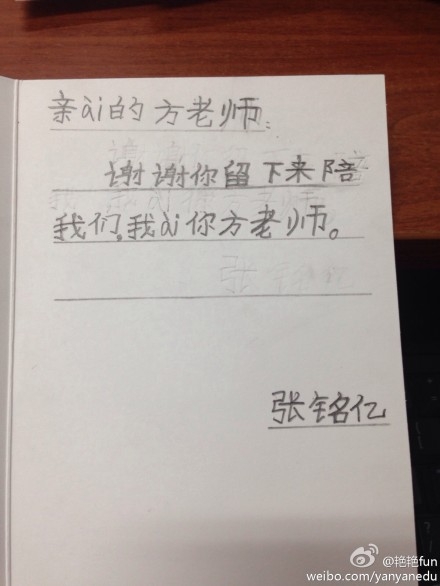 亲ài的方老师:
谢谢你留下来陪
我们,我ài你方老师。
张铭亿
@艳艳fun
weibo.com/yanyanedu